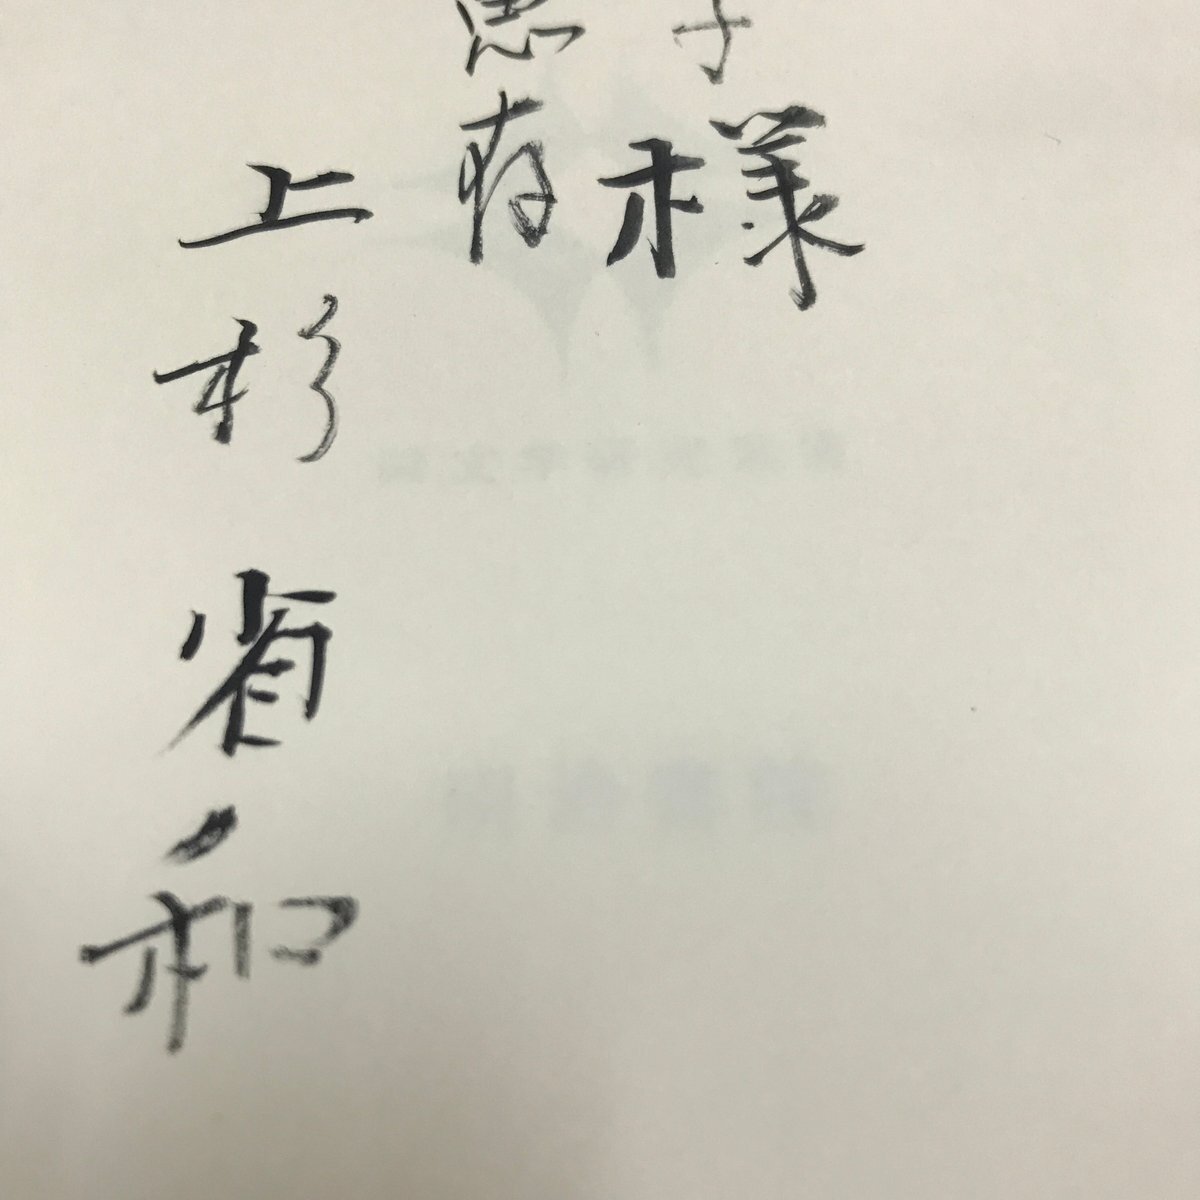 子様
惠存
上杉省和